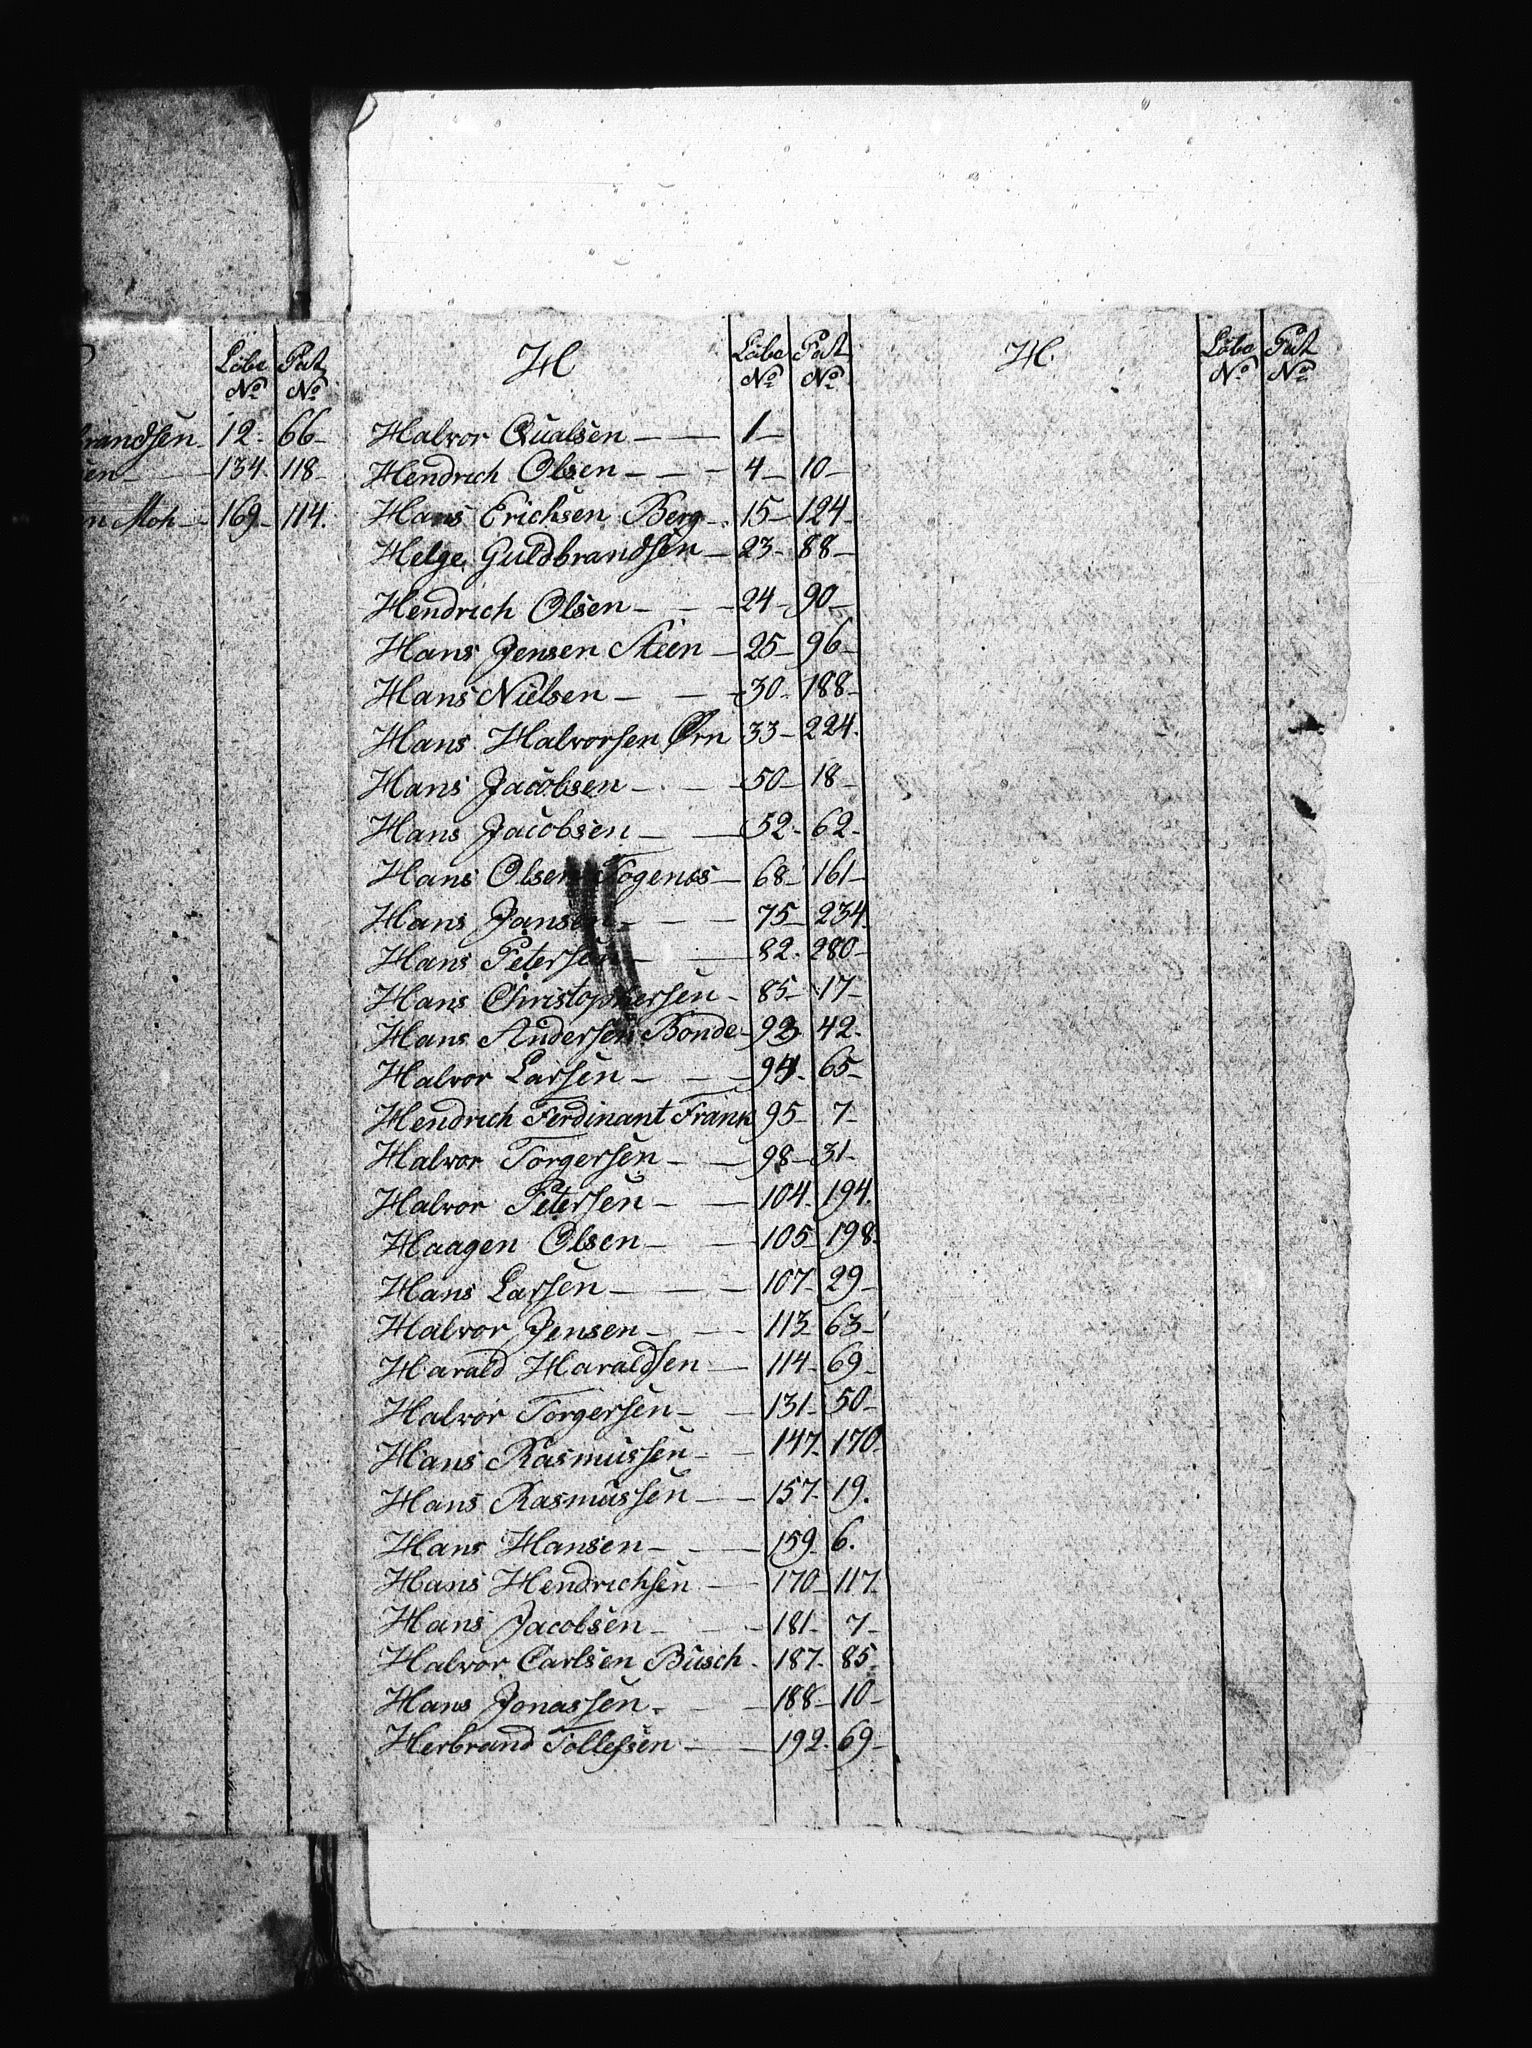 Løbe Pat
No No
brandsen 12 - 66 -
sen - 134. 118 -
n Moh - 169 - 114.
H Løbe Pat
No No
Halvor Qualsen - - 1 -
Hendrich Olsen - - - 4 - 10 -
Hans Erichsen Berg - 15 - 124 -
Helge Guldbrandsen - 23 - 88 -
Hendrich Olsen - - - 24 - 90 -
Hans Jensen Steen - 25 - 96 -
Hans Nielsen - - - 30 - 188 -
Hans Halvorsen Ørn 33 - 224.
Hans Jacobsen - - - 50 - 18 -
Hans Jacobsen - - 52 - 62 -
Hans Olsen - 68 - 161 -
Hans Jansen - - - 75 - 234.
Hans Petersen - - 82. 280 -
Hans Christophersen - 85 - 17 -
Hans Andersen Bonde - 93 42.
Halvor Larsen - - - 94. 65 -
Hendrich Ferdinant Frank 95 - 7 -
Halvor Torgersen - - 98 - 31 -
Halvor Petersen - - 104. 194.
Haagen Olsen - - 105 - 198.
Hans Larsen - - - 107 - 29 -
Halvor Jensen - - - 113 - 63 -
Harald Haraldsen - 114 - 69 -
Halvor Torgersen - - 131 - 50 -
Hans Rasmussen - - 147. 170.
Hans Rasmussen - - 157. 19.
Hans Hansen - - - 159. 6.
Hans Hendrichsen - 170 - 117.
Hans Jacobsen - - - 181 - 7 -
Halvor Carlsen Busch - 187. 85.
Hans Jonassen - - - 188 - 10 -
Herbrand Tollefsen - - 192. 69 -
H. Løbe Pat
No No